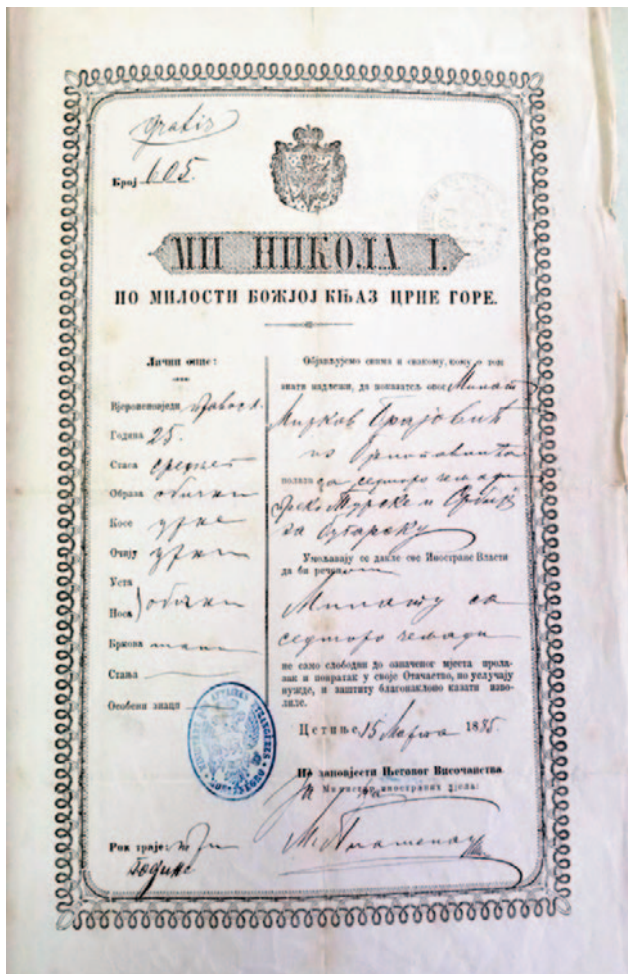 gratis
Број 605.
МИ НИКОЛА I.
ПО МИЛОСТИ БОЖЈОЈ КЊАЗ ЦРНЕ ГОРЕ.
Лични опис:
Вјероисповједи правосл.
Година 25.
Стаса средњег
Образа обични
Косе црне
Очију црни
Уста
Носа обични
Бркова мали
Стања
Особени знаци
Објављујемо свима и свакому, кому о том
знати надлежи, да показатељ овог Милат
Мирков
из
полази са седморо чељади
преко Турске и Србије
за Бугарску
Умољавају се дакле све Иностране Власти
да би речени
Милату са
седморо чељади
не само слободни до означеног мјеста прола-
зак и повратак у своје Отачаство, но услучају
нужде, и заштиту благонаклоно казати изво-
лиле.
Цетиње 15 Марта 1885.
По заповјести Његовог Височанства
За Министар иностраних дјела:
Рок траје
године